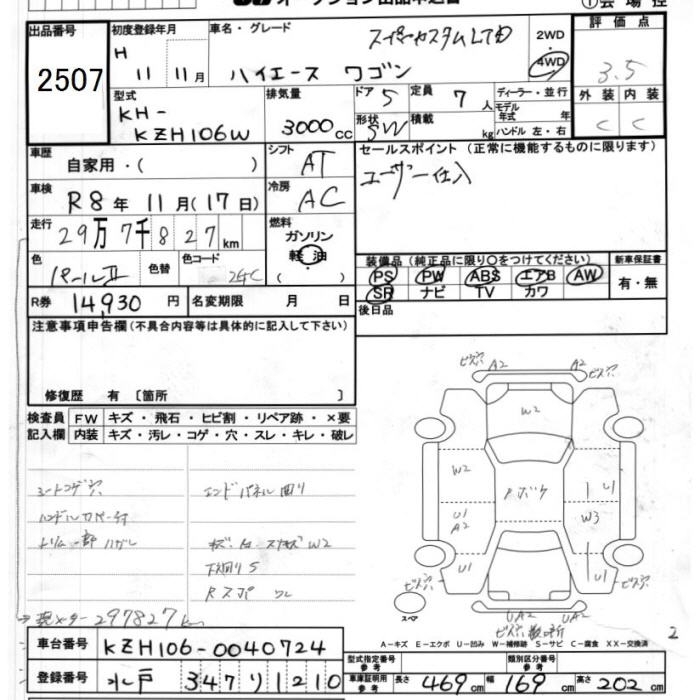 オークション出品申込書
①会場控
出品番号
2507
初度登録年月
H 11 11月
車名・グレード
スーパーカスタムLTD
ハイエース ワゴン
2WD
4WD
評価点
3.5
外装 内装
C C
型式
KH-
KZH106W
排気量
3000cc
ドア 5
定員 7人
形状 SW
積載 kg
ディーラー・並行
モデル年式 年
ハンドル 左・右
車歴
自家用・( )
シフト
AT
車検
R8年 11月(17日)
冷房
AC
走行
29万7千827km
燃料
ガソリン
軽油
( )
色
パールⅡ
色替
色コード
24C
R券 14,930円
名変期限 月 日
セールスポイント (正常に機能するものに限ります)
ユーザー仕入
装備品(純正品に限り○をつけてください)
PS PW ABS エアB AW
SR ナビ TV カワ
新車保証書
有・無
後日品
注意事項申告欄(不具合内容等は具体的に記入して下さい)
修復歴 有 〔箇所 〕
検査員記入欄
FW キズ・飛石・ヒビ割・リペア跡・×要
内装 キズ・汚レ・コゲ・穴・スレ・キレ・破レ
シートコゲ穴
ハンドルカバー付
トリム一部ハガレ
エンドパネル曲り
キズ・凹 W2
下回りS
Rスポ ワレ
現メーター297827km
ビス穴 A2 A2 ビス穴
W2
W2
U1
A2
U1
U1
W3
U1
ビス穴
ビス穴
UA2 UA2
スペア
2
A-キズ E-エクボ U-凹み W-補修跡 S-サビ C-腐食 XX-交換済
車台番号 KZH106-0040724
登録番号 水戸 347 リ 1210
型式指定番号 参考
類別区分番号 参考
車庫証明用 参考
長さ 469cm 幅 169cm 高さ 202cm